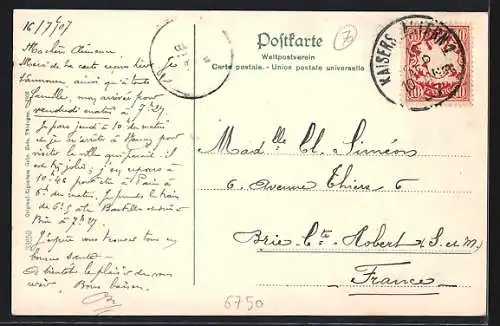 16/7/07
Postkarte
Weltpostverein
Carte postale. - Union postale universelle
7
KAISERS
10
Ma chère Clémence
Merci de la carte reçue hier. Je
t'annonce ainsi qu'à toute la
famille, mon arrivée pour
vendredi matin à 7h27
Je pars jeudi à 10 du matin
et je m'arrête à Nancy pour
visiter la ville qui paraît-il
est très jolie; j'en repars à
10h46 pour être à Paris à
6h du matin, je prends le train
de 6h5 à la Bastille et suis à
Brie à 7h27
J'espère vous trouver tous en
bonne santé —
A bientôt le plaisir de vous
voir. Bons baisers.
Madlle Cl. Siméon
6 Avenue Thiers 6
Brie-Cte-Robert (S. et M.)
France
6750